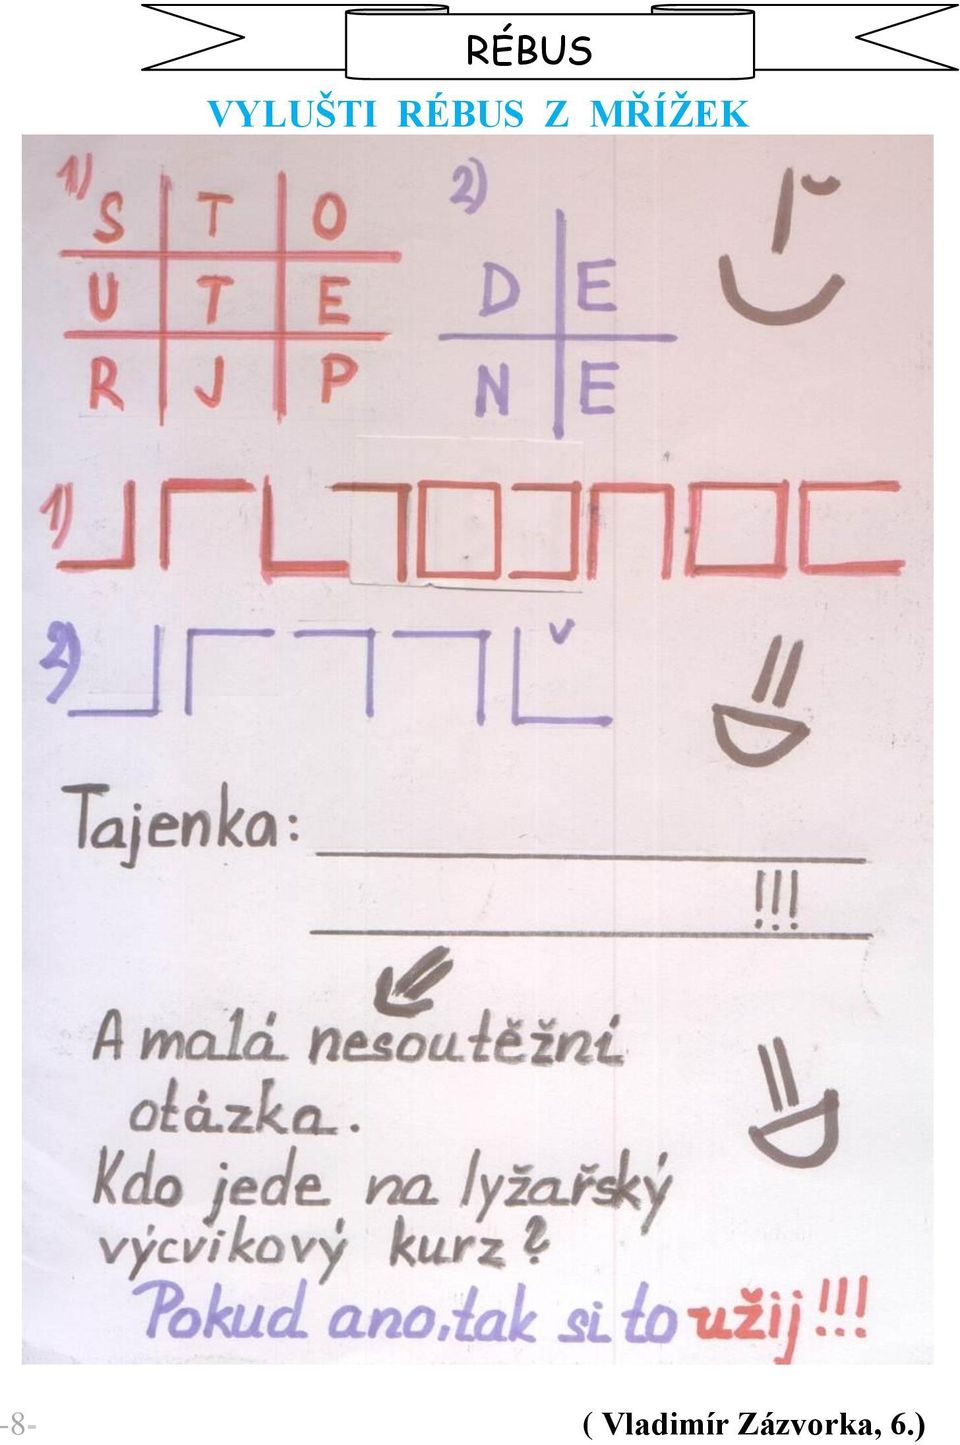 RÉBUS
VYLUŠTI RÉBUS Z MŘÍŽEK
1) S T O
U T E
R J P
2) D E
N E
1)
2)
Tajenka:
!!!
A malá nesoutěžní
otázka.
Kdo jede na lyžařský
výcvikový kurz?
Pokud ano, tak si to užij!!!
-8-
( Vladimír Zázvorka, 6.)